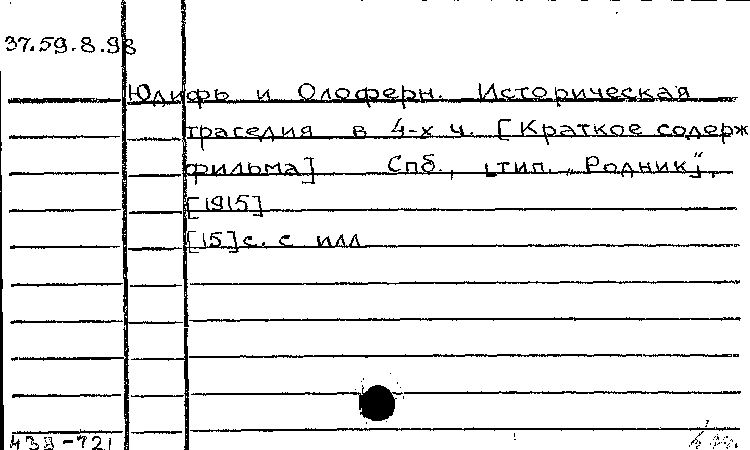 37.59.8.98
Юдифь и Олоферн. Историческая
трагедия в 4-х ч. [Краткое содерж
фильма] Спб., [тип. „Родник"],
[1915]
[15] с. с илл
439-721